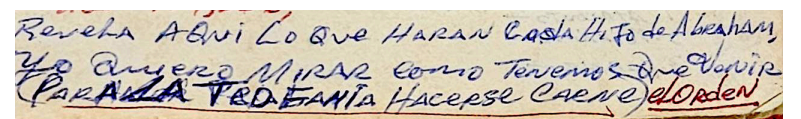 Revela AQui Lo Que HARAN Cada HiJo de Abraham,
Yo Quiero MIRAR como Tenemos Que Venir
(PARA LA TEOFANÍA HACERSE CARNE) el ORdEN